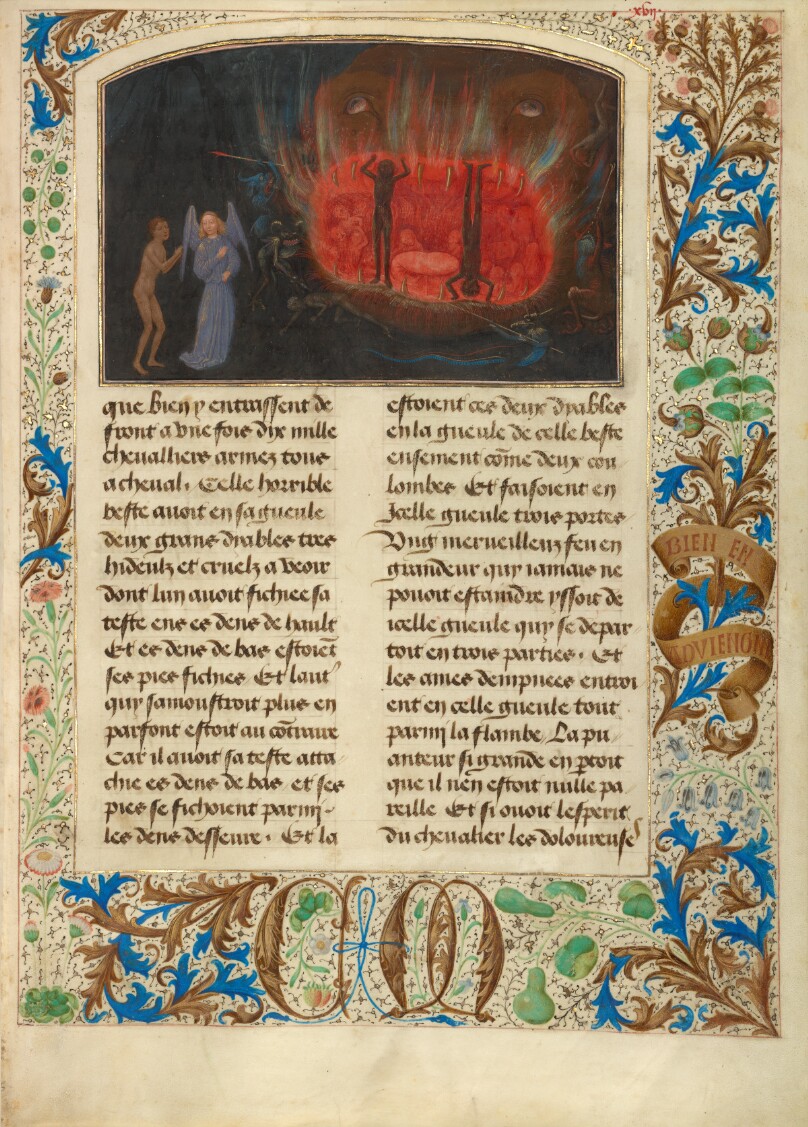 .xvij.
que bien y entrassent de
front a vne fois dix mille
cheualliers armez tous
a cheual. Celle horrible
beste auoit en sa gueule
deux grans dyables tres
hideulz et cruelz a veoir
dont lun auoit fichiee sa
teste ens es dens de hault
Et es dens de bas estoiẽt
ses pies fichies Et laut'
quy samoustroit plus en
parfont estoit au cõtraire
Car il auoit sa teste atta
chie es dens de bas et ses
pies se fichoient parmi
les dens desseure. Et la
estoient ces deux dyables
en la gueule de celle beste
ensement cõme deux cou
lombes Et faisoient en
Icelle gueule trois portes
Vng merueilleux feu en
grandeur quy iamais ne
pouoit estaindre yssoit de
icelle gueule quy se depar
toit en trois parties. Et
les ames dempnees entroi
ent en celle gueule tout
parmi la flambe La pu
anteur si grande en ꝑtoit
que il nen estoit nulle pa
reille Et si ouoit lesperit
du cheualier les doloureuses
BIEN EN
AVIENGNE
C M